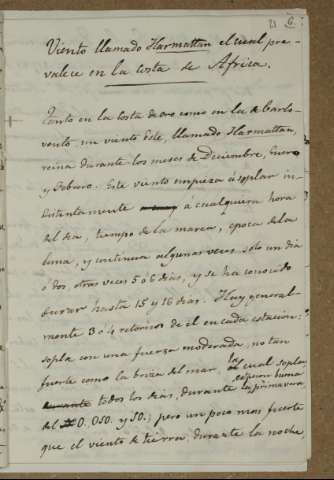 21 6.
Viento llamado Harmattan el cual pre-
valece en la Costa de Africa.
Tanto en la Costa de oro como en la de barlo-
vento, un viento Este, llamado Harmattan,
reina durante los meses de Diciembre, Enero
y Febrero. Este viento empieza á soplar in-
distantamente á cualquiera hora
del dia, tiempo de la marea, epoca de la
luna, y continua algunas veces solo un dia
ó dos, otras veces 5 ó 6 dias, y se ha conocido
durar hasta 15 y 16 dias. Hay general-
mente 3 ó 4 retornos de él en cada estacion;
sopla con una fuerza moderada, no tan
fuerte como la briza del mar, la cual sopla
todos los dias, durante la primavera,
del O. OSO. y SO.; pero un poco mas fuerte
que el viento de tierra durante la noche,